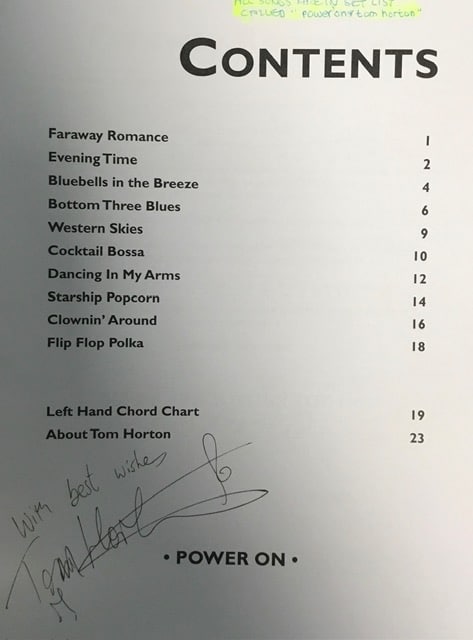 ALL SONGS ARE IN SET LIST
CALLED: "poweron#tom horton"
CONTENTS
Faraway Romance 1
Evening Time 2
Bluebells in the Breeze 4
Bottom Three Blues 6
Western Skies 9
Cocktail Bossa 10
Dancing In My Arms 12
Starship Popcorn 14
Clownin' Around 16
Flip Flop Polka 18
Left Hand Chord Chart 19
About Tom Horton 23
With best wishes
Tom Horton
• POWER ON •